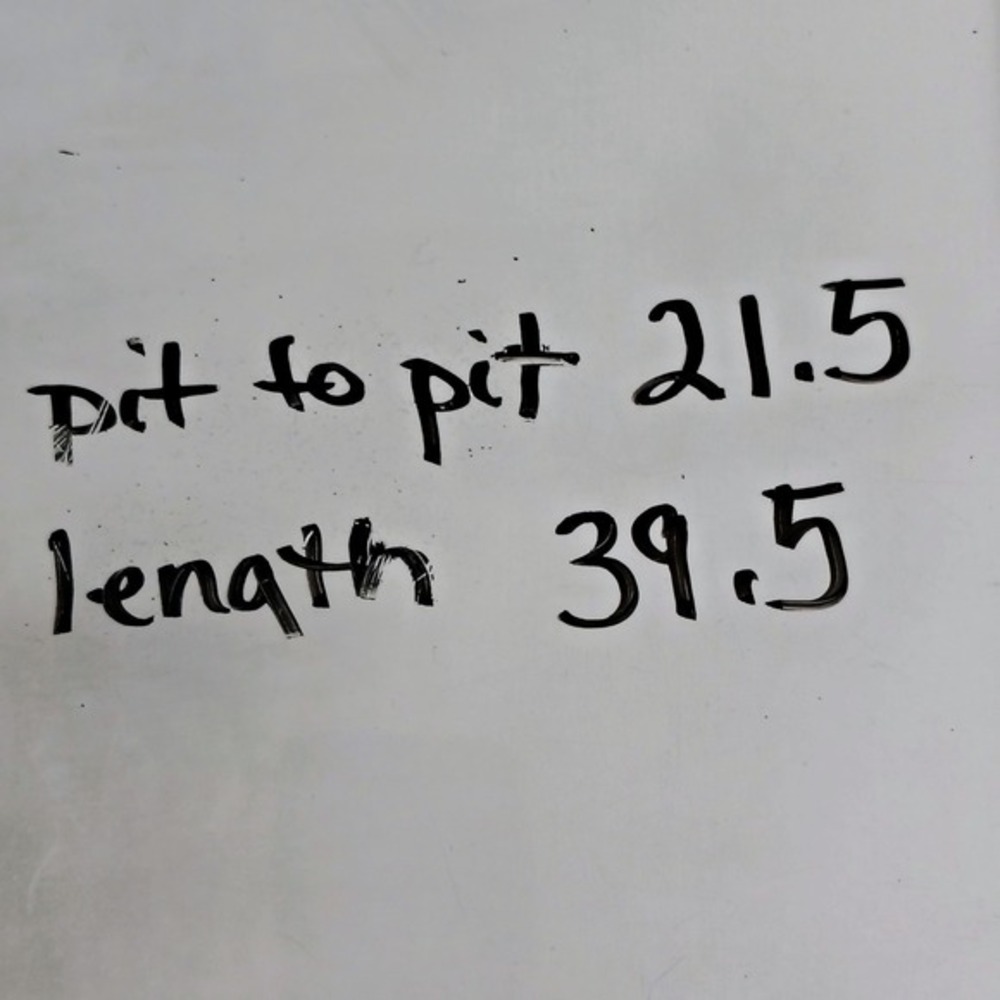 pit to pit 21.5
length 39.5